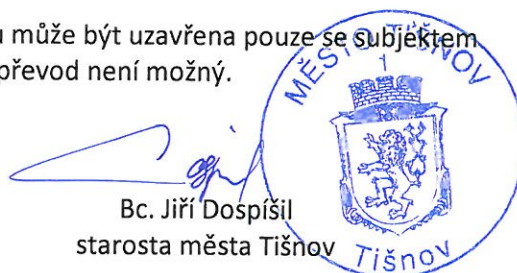 u může být uzavřena pouze se subjektem
převod není možný.
MĚSTO TIŠNOV
1
Bc. Jiří Dospíšil
starosta města Tišnov
Tišnov